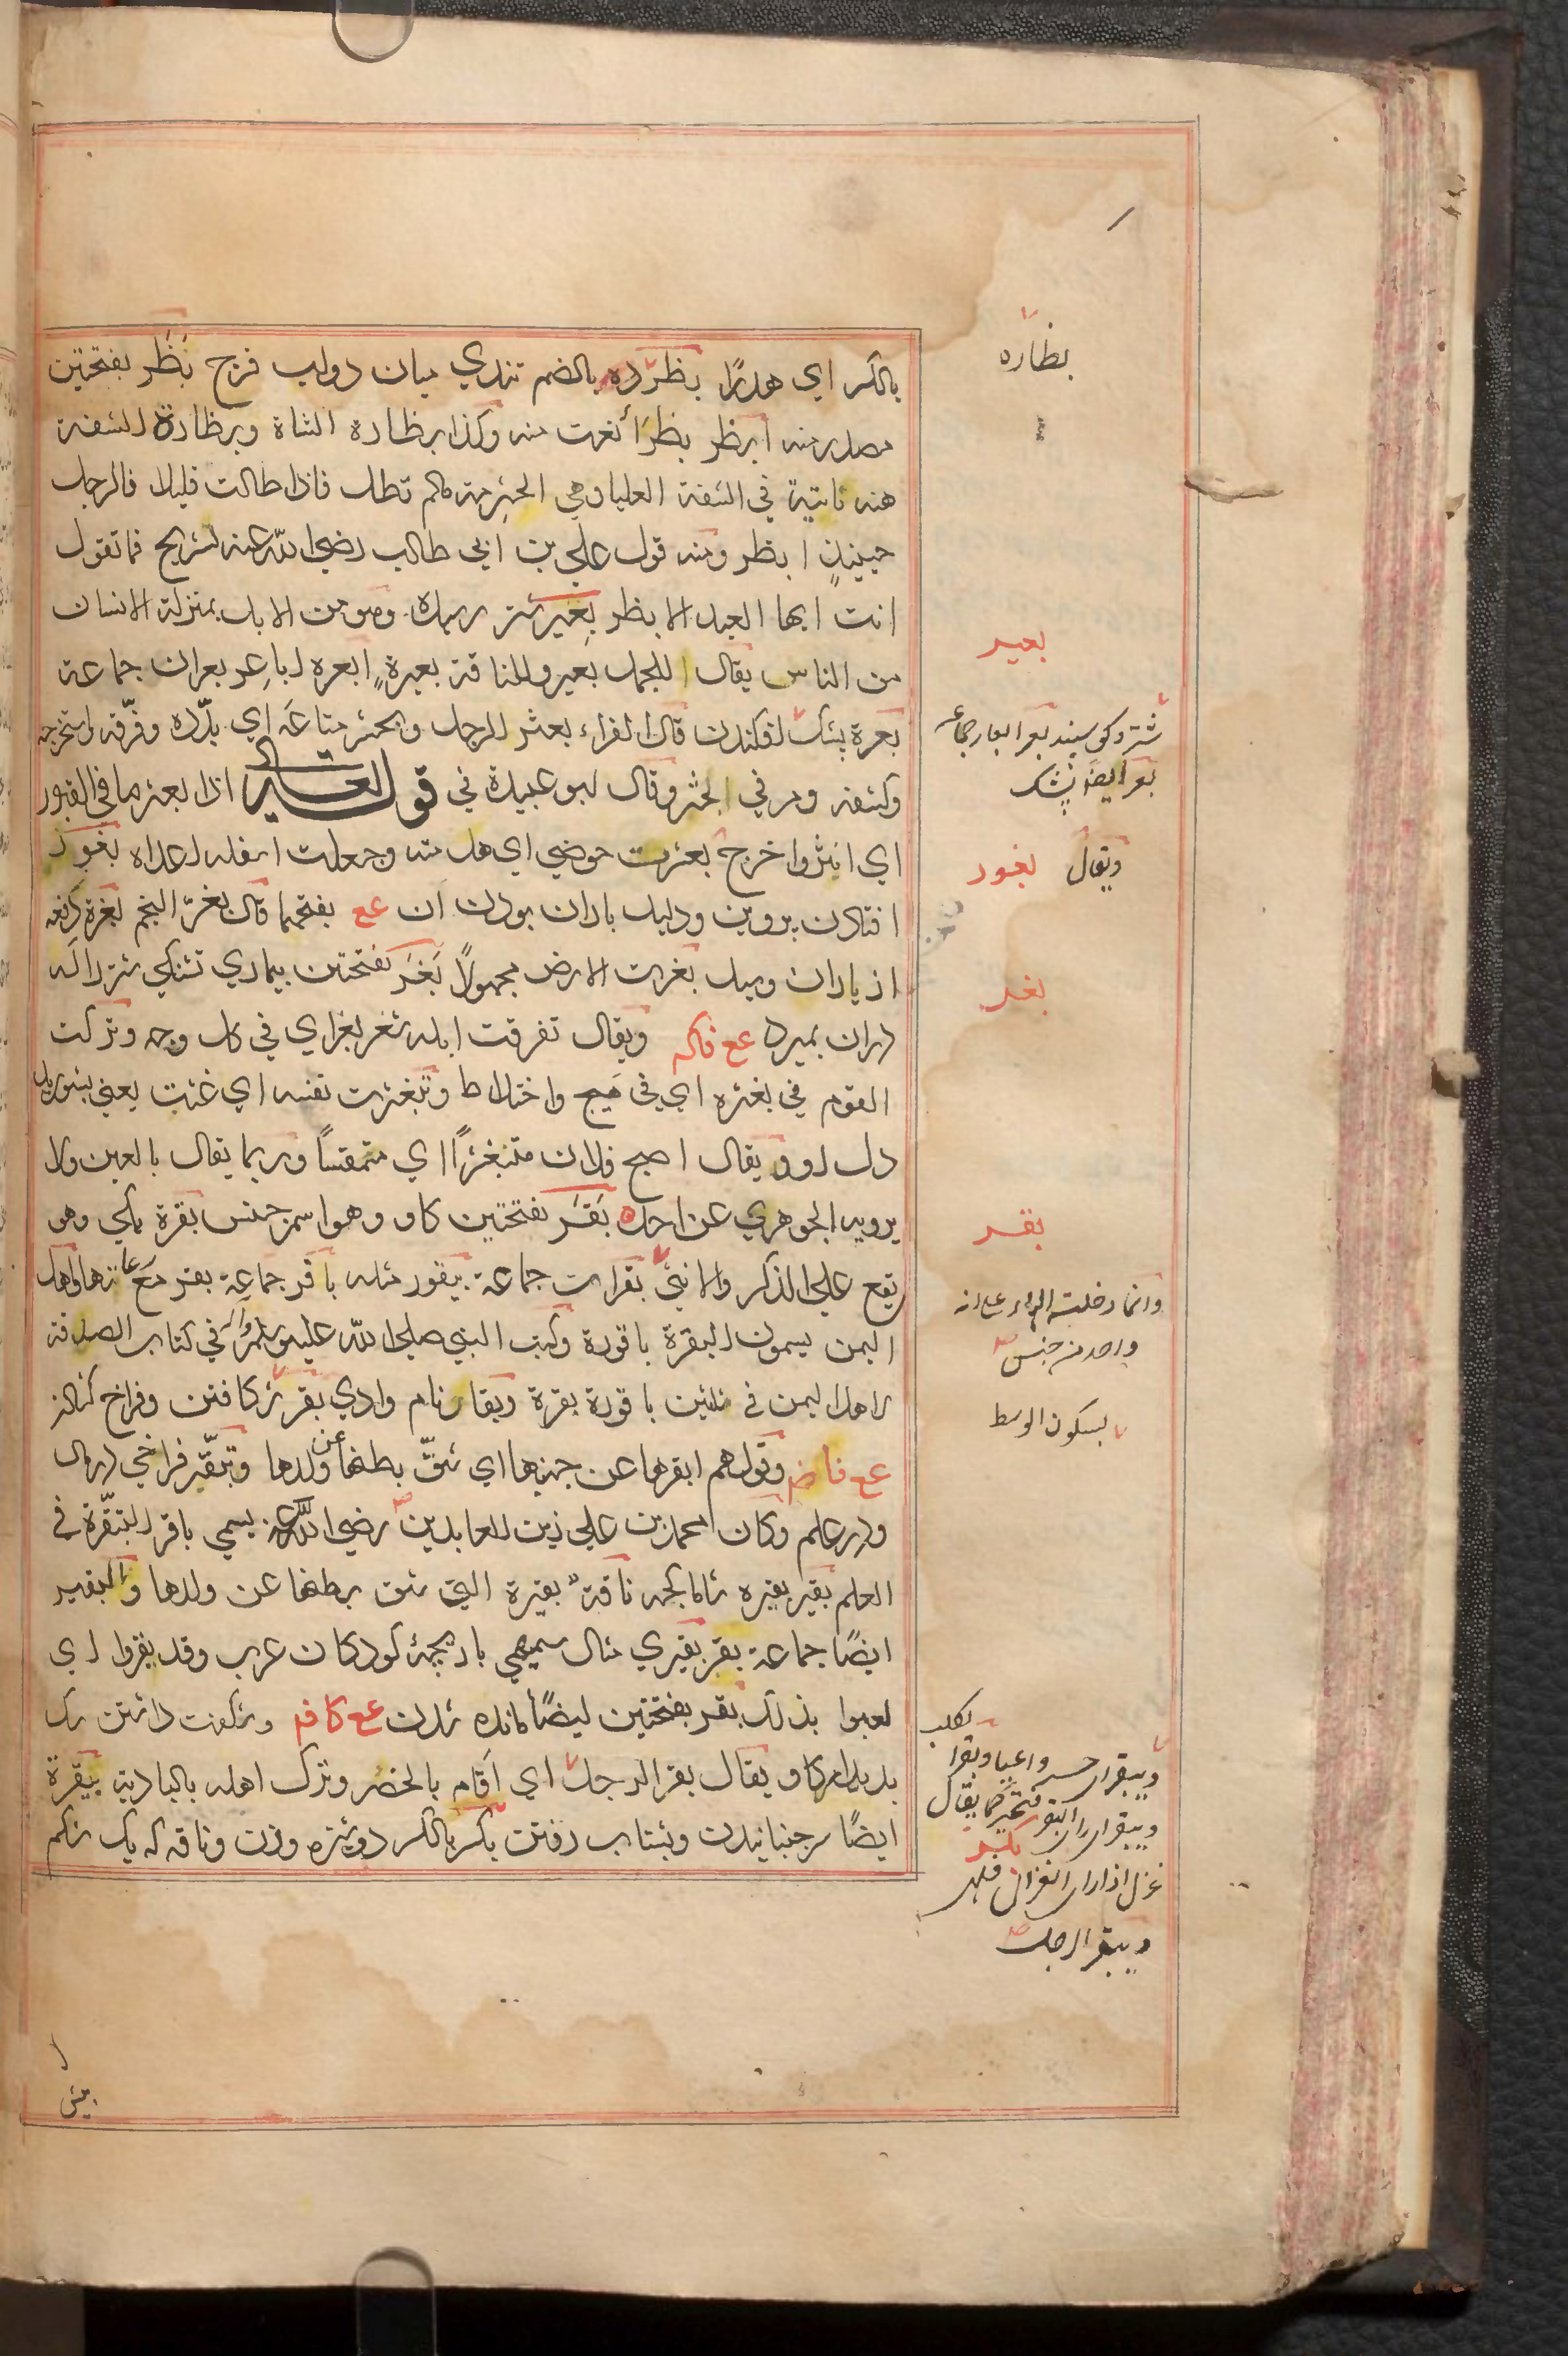 بالكسر اي هدرًا بظرده بالضم تندي ميان دولب فرج بَظَر بفتحتين
مصدر منه ابظر بظرًا نعت منه وكذا بظارة الشاة وبظارة الشفة
هنه ناتية في الشفة العليا وهي الحثرمة مالم تطل فاذا طالت قليلا فالرجل
حينيذٍ ابظر ومنه قول علي بن ابي طالب رضي الله عنه لشريح فما تقول
انت ايها العبد الابظر بعير شتر رسيده وهو من الابل بمنزلة الانسان
من الناس يقال للجمل بعير وللناقة بعيرة ابعره اباعر بعران جماعة
بعرة پشك افكندن قال الفراء بعثر الرجل وبحثر متاعه اي بدّده وفرّقه واستخرجه
وكشفه ومر في الحثر وقال ابو عبيدة في قوله تعالى اذا بعثر ما في القبور
اي اثير واخرج بعثرت حوضي اي هدمته وجعلت اسفله اعلاه بغور
افتادن پروين ودليل باران بودن آن عع بفتحهما قال بغرّ النجم بغرة دفعه
از باران وميل بغرت الارض مجهولًا بَغَر بفتحتين بيماري تشنكي شتر راكه
دران بميرد عع فاكه ويقال تفرقت ابله شغر بغر اي في كل وجه وتركت
القوم في بغثره اي في هيج واختلاط وتبغثرت نفسه اي غثت يعني بشوريد
دل او ويقال اصبح فلان متبغثرًا اي متمقسًا وربما يقال بالعين ولا
يرويه الجوهري عن احد بَقَر بفتحتين كاو وهو اسم جنس بقرة يكي وهى
يقع علي الذكر والانثي بقرات جماعة بيقور مثله باقر جماعة بقر مع رعاتها واهل
اليمن يسمون البقرة باقورة وكتب النبي صلي الله عليه وسلم في كتاب الصدقة
لاهل اليمن في ثلثين باقورة بقرة وبقار نام وادي بقر شكافتن وفراخ كردن
عع فاض وقولهم ابقرها عن جنينها اي شقّ بطنها عن ولدها وتبقّر فراخي در مال
ودر علم وكان محمد بن علي زين العابدين رضي الله عنه يسمي باقر لتبقّره في
العلم بقير بقيره شاماكچه ناقة بقيرة التي شق بطنها عن ولدها والبقير
ايضًا جماعة بقر بقيري مثال سميهي بازيچهٔ كودكان عرب وقد بقروا اي
لعبوا بذلك بقر بفتحتين ايضًا مانده شدن عع كافه وشكفت داشتن سك
بديدار كاو يقال بقر الرجل اي اقام بالحضر وترك اهله بالبادية بيقرة
ايضًا سر جنبانيدن وبشتاب رفتن بكر بالكسر دوشيزه وزن وناقه كه يك شكم
بظاره
بعير
شتر وكوسپند بعر ابعار جماعه
بعر ايضا پشك
ويقال بغور
بغر
بقر
وانما دخلت الهاء علي انه
واحد من جنس
بسكون الوسط
وبيقر اي حسر واعيا وبقر الكلب
غزل اذا راى الغزال
بكر
وبيقر الرجل